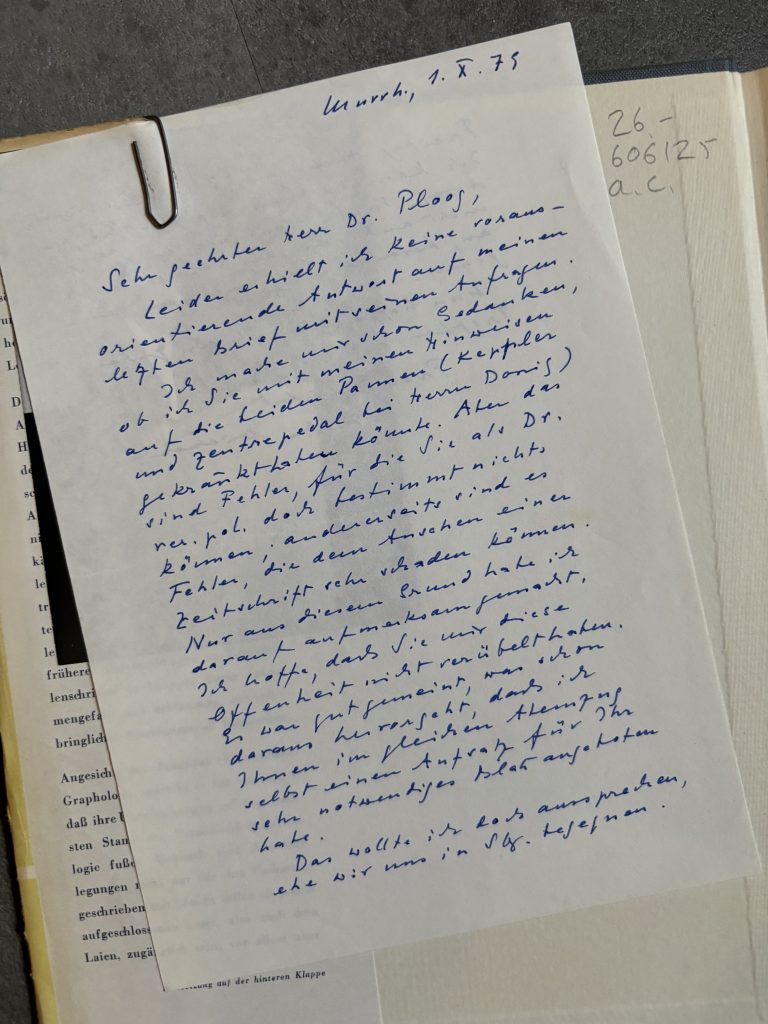 Murrh., 1. X. 79
26.-
606125
a.c.
Sehr geehrter Herr Dr. Ploog,
Leider erhielt ich keine voraus-
orientierende Antwort auf meinen
letzten Brief mit seinen Anfragen.
Ich mache mir schon Gedanken,
ob ich Sie mit meinen Hinweisen
auf die beiden Pannen (Keppler
und Zentrepedal bei Herrn Danig)
gekränkt haben könnte. Aber das
sind Fehler, für die Sie als Dr.
rer. pol. doch bestimmt nichts
können; andererseits sind es
Fehler, die dem Ansehen einer
Zeitschrift sehr schaden können.
Nur aus diesem Grund habe ich
darauf aufmerksam gemacht.
Ich hoffe, dass Sie mir diese
Offenheit nicht verübelt haben.
Es war gut gemeint, was schon
daraus hervorgeht, dass ich
Ihnen im gleichen Atemzug
selbst einen Aufsatz für Ihr
sehr notwendiges Blatt angeboten
hatte.
Das wollte ich doch aussprechen,
ehe wir uns in Sbg. begegnen.
früher
lenschri
mengefa
bringlich
Angesich
Grapholo
daß ihre
sten Stan
logie fuße
legungen
geschrieben
aufgeschloss
Laien, zugä
auf der hinteren Klappe